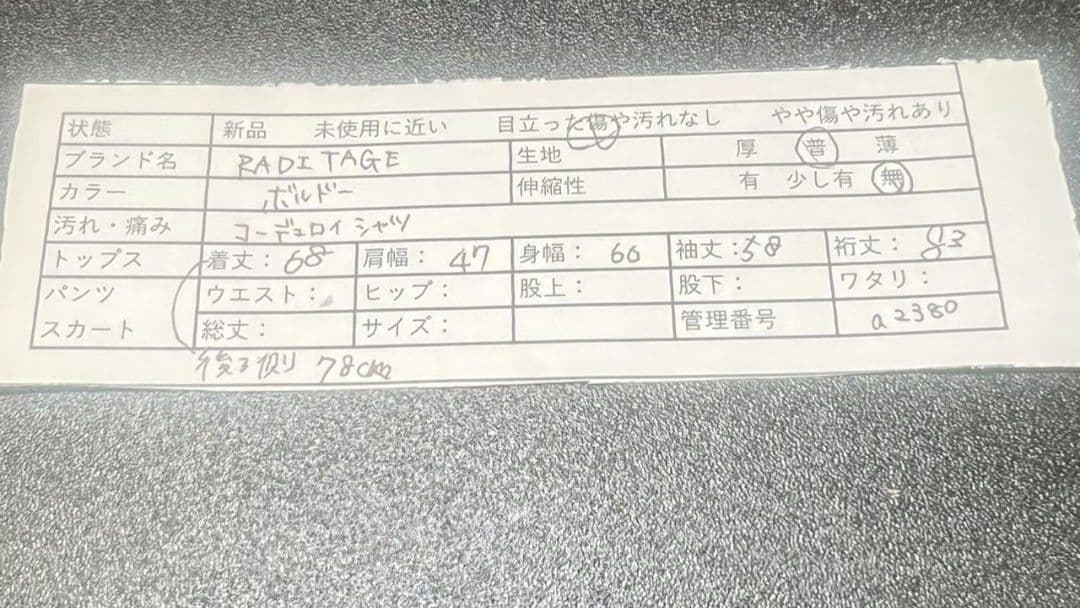 状態 新品 未使用に近い 目立った傷や汚れなし やや傷や汚れあり
ブランド名 RADITAGE 生地 厚 普 薄
カラー ボルドー 伸縮性 有 少し有 無
汚れ・痛み コーデュロイシャツ
トップス 着丈：68 肩幅：47 身幅：66 袖丈：58 裄丈：83
パンツ ウエスト： ヒップ： 股上： 股下： ワタリ：
スカート 総丈： サイズ： 管理番号 a2380
後ろ側り 78cm